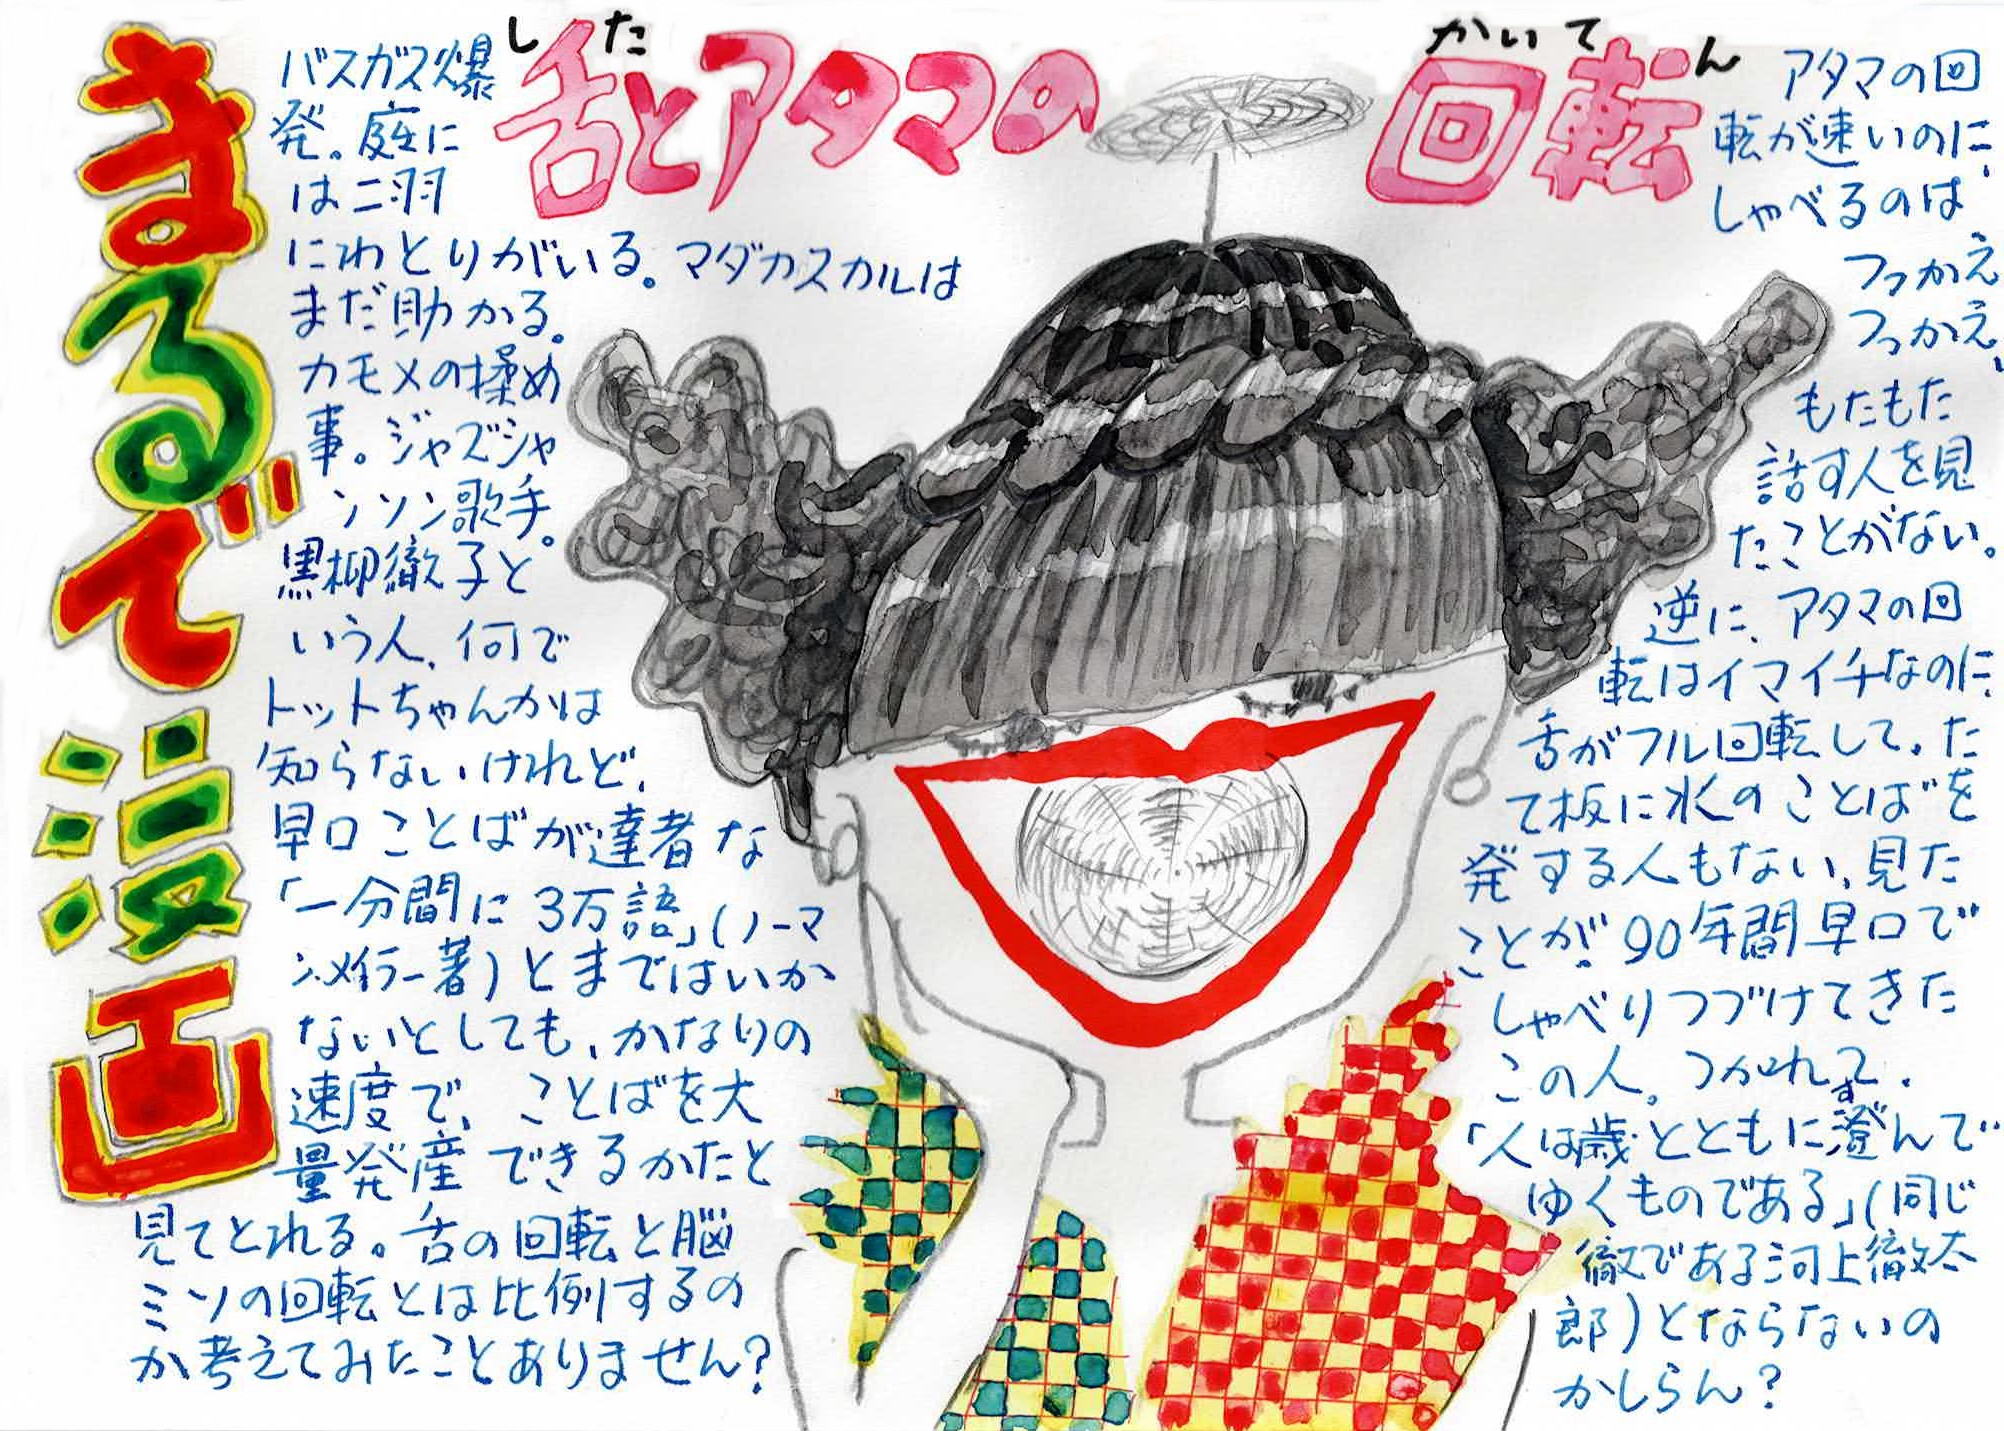 まるで漫画
した
かいてん
舌とアタマの回転
バスガス爆
発。庭に
は二羽
にわとりがいる。マダガスカルは
まだ助かる。
カモメの揉め
事。ジャズシャ
ンソン歌手。
黒柳徹子と
いう人、何で
トットちゃんかは
知らないけれど、
早口ことばが達者な
「一分間に3万語」(ノーマ
ン・メイラー著)とまではいか
ないとしても、かなりの
速度で、ことばを大
量発産できるかたと
見てとれる。舌の回転と脳
ミソの回転とは比例するの
か考えてみたことありません?
アタマの回
転が速いのに、
しゃべるのは
つっかえ
つっかえ、
もたもた
話す人を見
たことがない。
逆に、アタマの回
転はイマイチなのに
舌がフル回転して、た
て板に水のことばを
発する人もない、見た
ことが。90年間早口で
しゃべりつづけてきた
この人。つかれて、
す
「人は歳とともに澄んで
ゆくものである」(同じ
徹である河上徹太
郎)とならないの
かしらん?